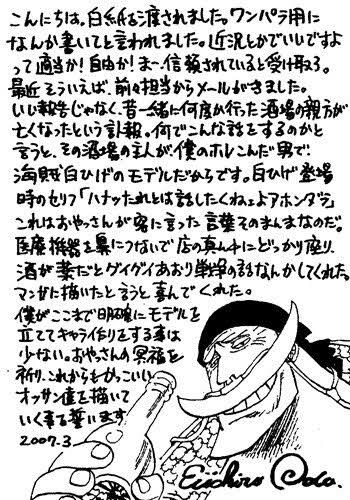 こんにちは。白紙を渡されました。ワンパラ用に
なんか書いてと言われました。近況とかでいいですよ
って適当か!自由か!まー、信頼されていると受け取ろう。
最近そういえば、前々担当からメールがきました。
いい報告じゃなく、昔一緒に何度か行った酒場の親方が
亡くなったという訃報。何でこんな話をするのかと
言うと、その酒場の主人が、僕のホレこんだ男で、
海賊白ひげのモデルだからです。白ひげ登場
時のセリフ「ハナッたれとは話したくねェよアホンダラ」
これはおやっさんが客に言った言葉そのまんまなのだ。
医療機器を鼻につないで店の真ん中にどっかり座り、
酒が薬だとグイグイあおり戦争の話なんかしてくれた。
マンガに描いたと言うと喜んでくれた。
僕がここまで明確にモデルを
立ててキャラ作りをする事は
少ない。おやっさんの冥福を
祈り、これからもかっこいい
オッサン達を描いて
いく事を誓います
2007.3.
Eiichiro Oda.